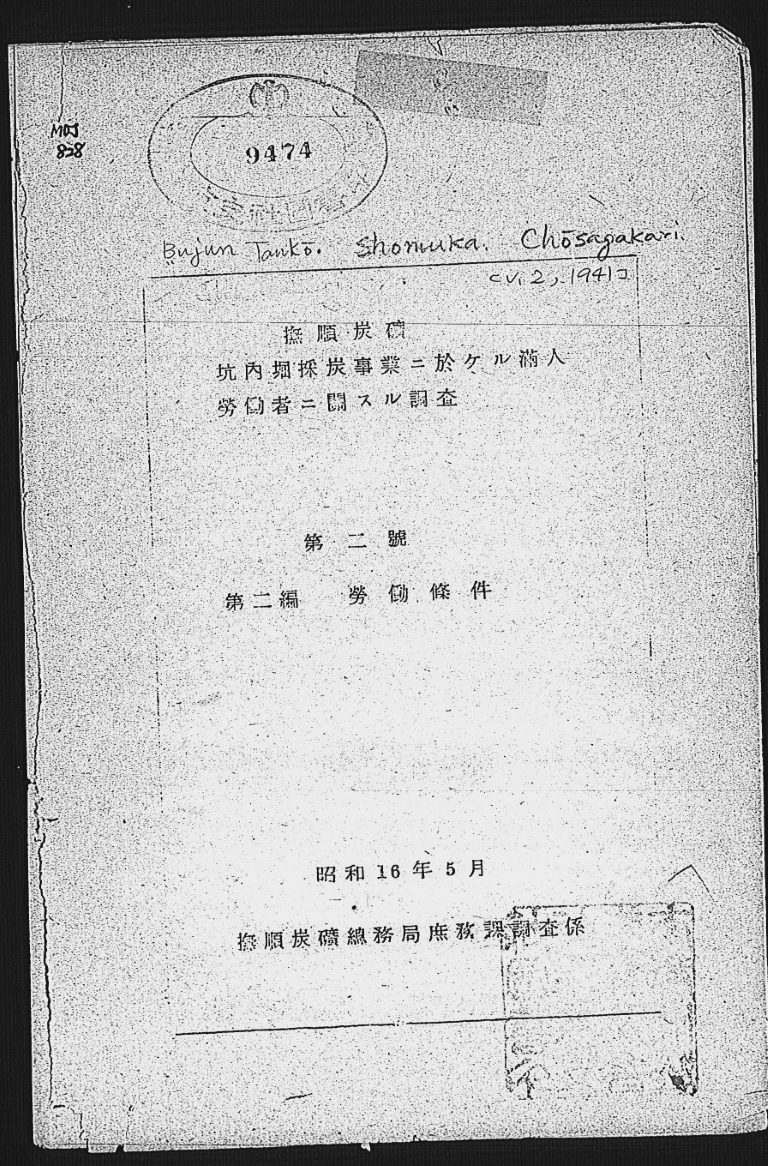 MOJ
838
9474
Bujun Tankō. Shomuka. Chōsagakari.
[v. 2, 1941]
撫順炭礦
坑內堀採炭事業ニ於ケル滿人
勞働者ニ關スル調査
第二號
第二編 勞働條件
昭和16年5月
撫順炭礦總務局庶務課調査係